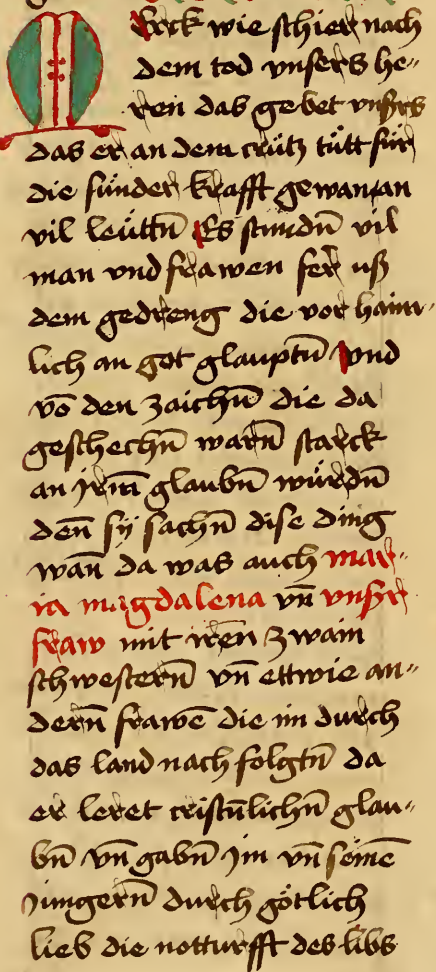 Merck wie schier nach
dem tod vnsers he-
ren das gebet vnsrs
das er an dem crütz tütt für
die sünder krafft gewan an
vil leüttn̄ Es stundn̄ vil
man vnd frawen fer uß
dem gedreng die vor haim-
lich an got glauptn̄ vnd
vō den zaichn̄ die da
geschechn̄ warn̄ starck
an jrem̄ glaubn̄ würdn̄
den̄ sy sachn̄ dise ding
wan̄ da was auch mar-
ia magdalena vn̄ vnsrr
fraw mit iren̄ zwain
schwestern̄ vn̄ ettwie an-
dern̄ frawē die im durch
das land nach folgtn̄ da
er leret cristūlichn̄ glau-
bn̄ vn̄ gabn̄ jm vn̄ seinē
jungern̄ durch götlich
lieb die notturfft des libs